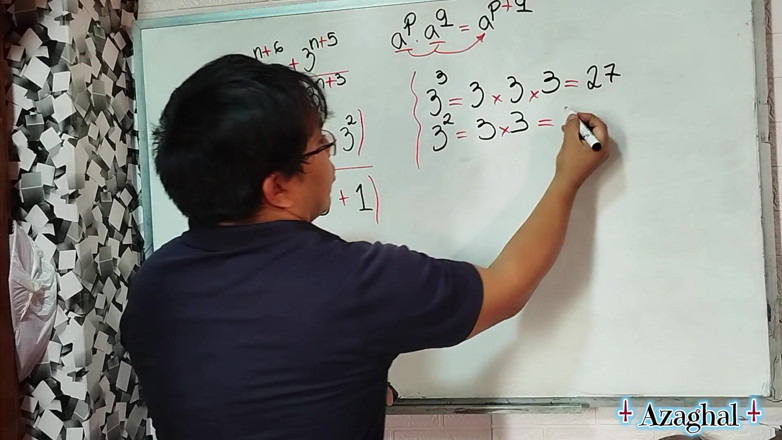 aᵖ · a^q = a^(p+q)
n+6 + 3^(n+5)
n+3
3³ = 3 × 3 × 3 = 27
3² = 3 × 3 =
3²)
+ 1)
Azaghal